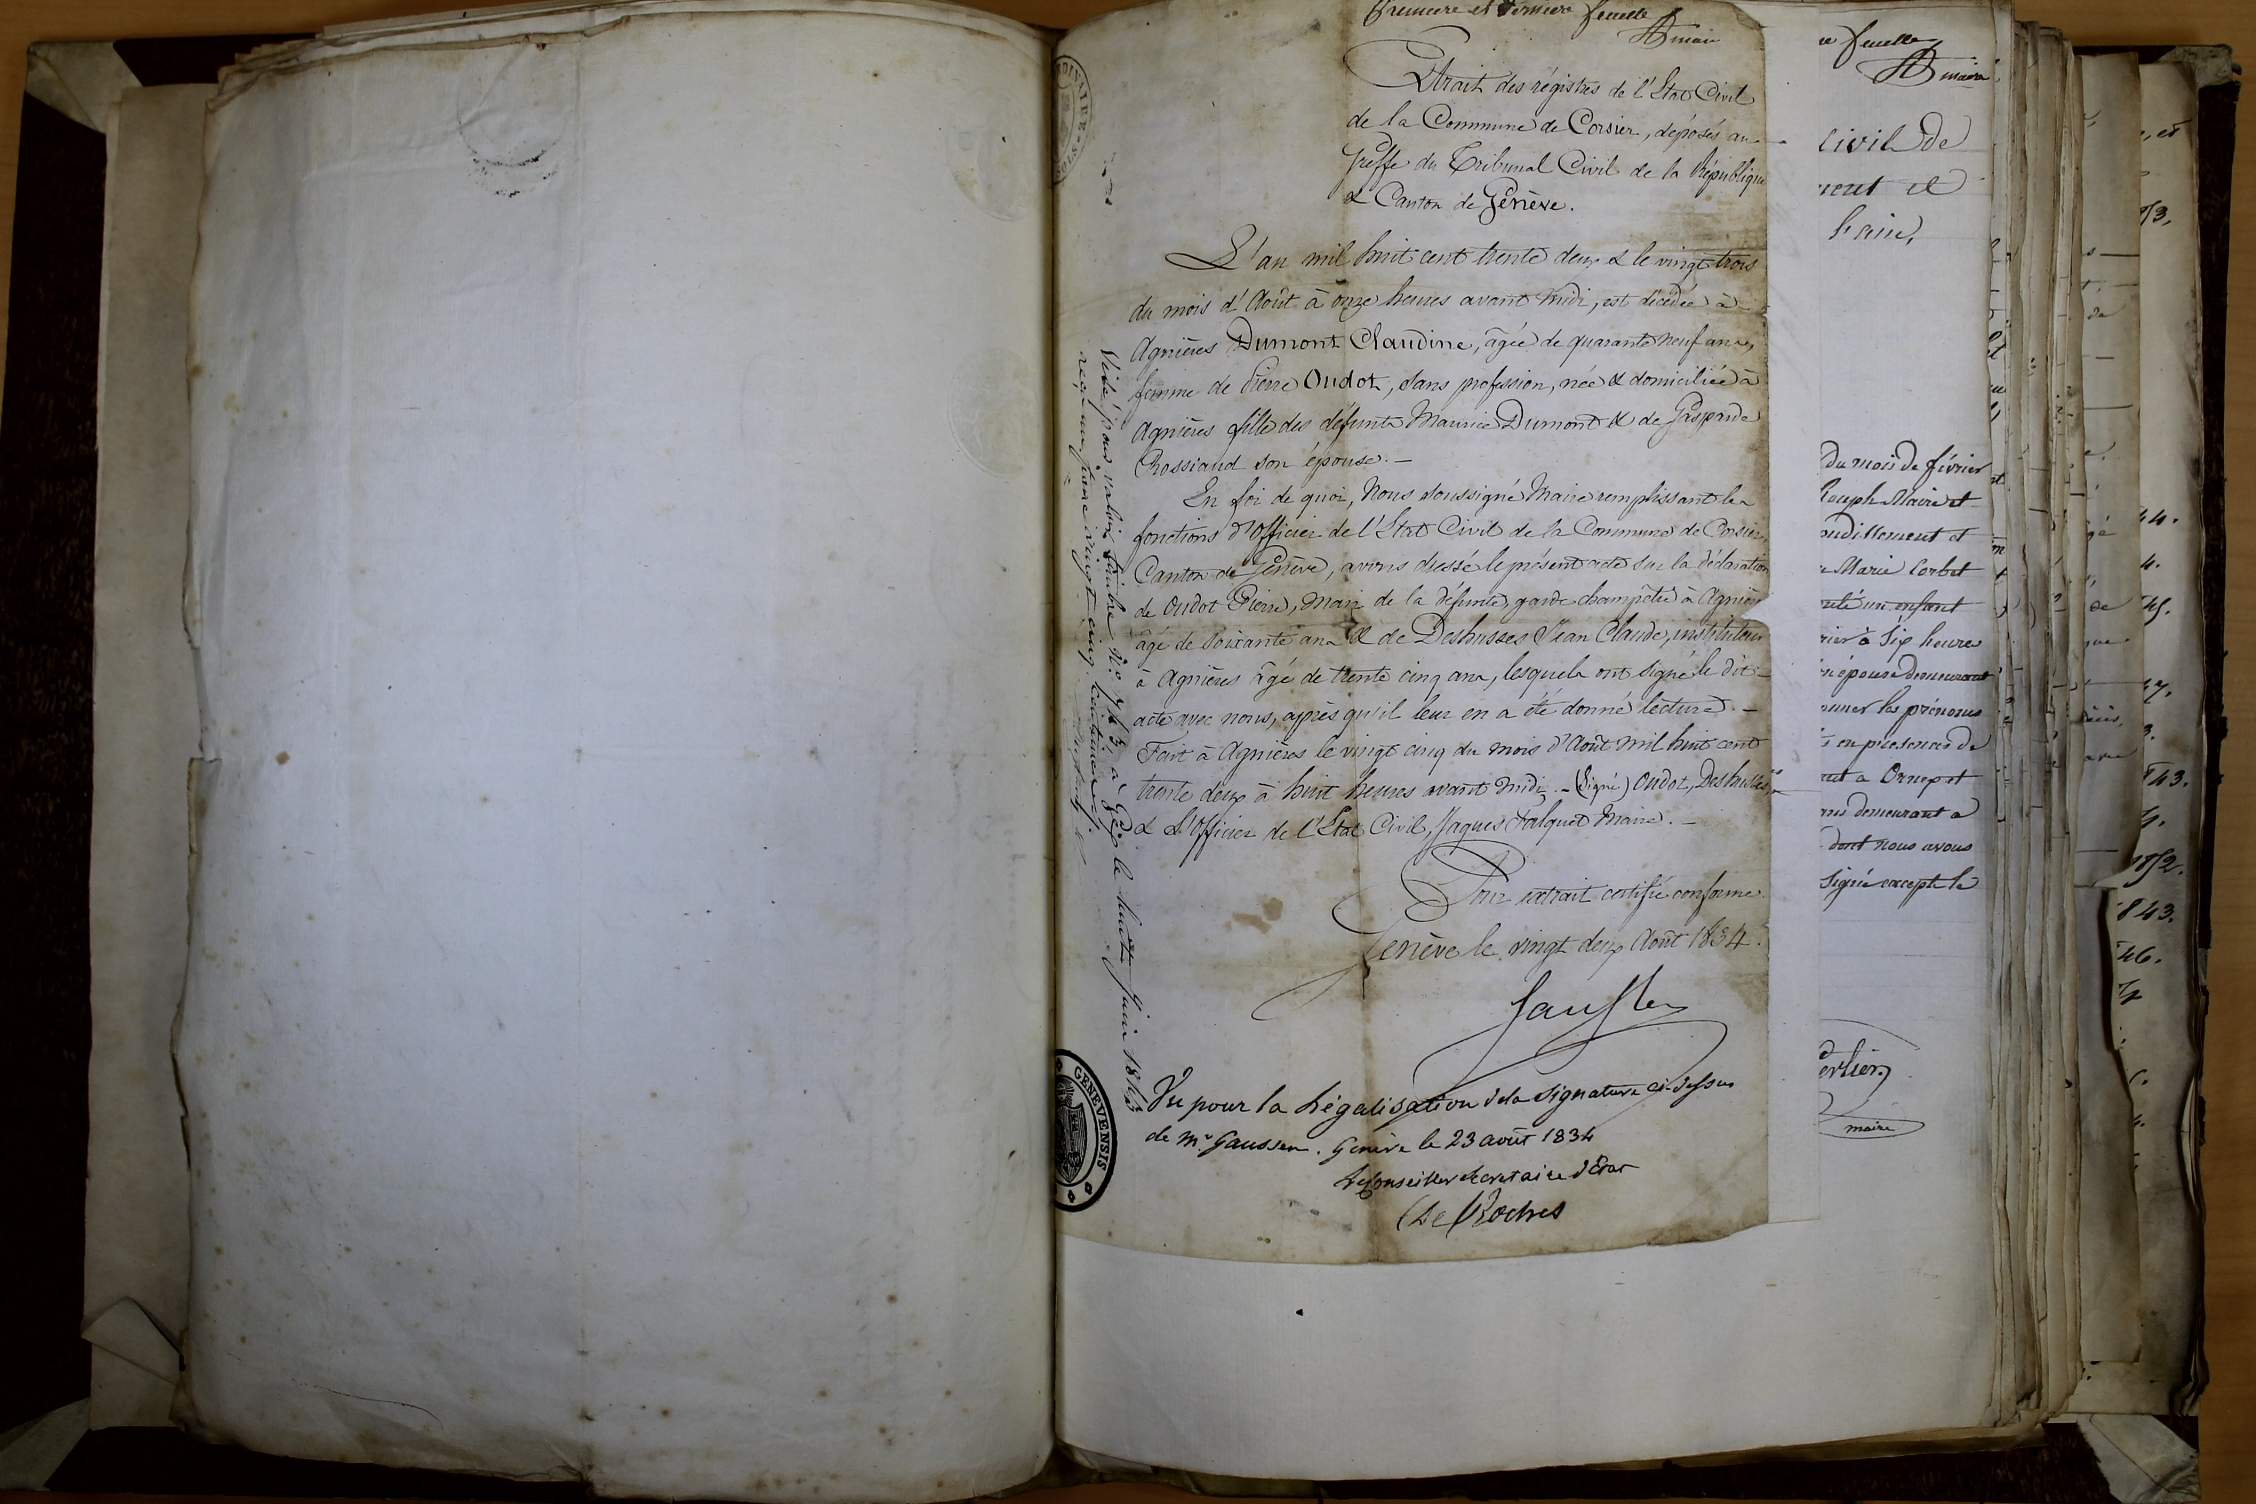 Première et dernière feuille
maire
Extrait des régistres de l'Etat Civil
de la Commune de Corsier, déposés au
Greffe du Tribunal Civil de la République
& Canton de Genève.
L'an mil huit cent trente deux & le vingt trois
du mois d'Août à onze heures avant midi, est décédée à
Agnières Dumont Claudine, âgée de quarante neuf ans,
femme de Pierre Oudot, sans profession, née & domiciliée à
Agnières fille des défunts Maurice Dumont & de
Rossiaud son épouse.—
En foi de quoi, Nous soussigné Maire remplissant les
fonctions d'Officier de l'Etat Civil de la Commune de Corsier,
Canton de Genève, avons dressé le présent acte sur la déclaration
de Oudot Pierre, mari de la défunte, garde champêtre à Agnières
âgé de soixante ans & de Deshusses Jean Claude, instituteur
à Agnières âgé de trente cinq ans, lesquels ont signé le dit
acte avec nous, après qu'il leur en a été donné lecture.—
Fait à Agnières le vingt cinq du mois d'Août mil huit cent
trente deux à huit heures avant midi.—(Signé) Oudot, Deshusses,
& L'Officier de l'Etat Civil, Jaques Falquet Maire.—
Pour extrait certifié conforme
Genève le vingt deux Août 1834.
Vu pour la Légalisation de la signature ci-dessus
de Mr Gaussen. Genève le 23 août 1834
Le Conseiller Secretaire d'Etat
De Roches
Visé pour valoir timbre No à Gex le huit Juin 1843
reçu un franc vingt cinq centimes
GENEVENSIS
re feuille
maire
Civil de
ment et
du mois de février
Joseph Maire et
Marie Corbet
un enfant
à Six heures
épouse demeurant
donner les prénoms
en présence de
a Ornex et
demeurant a
dont nous avons
signé excepté le
maire
44.
4.
43.
1852.
1843.
46.